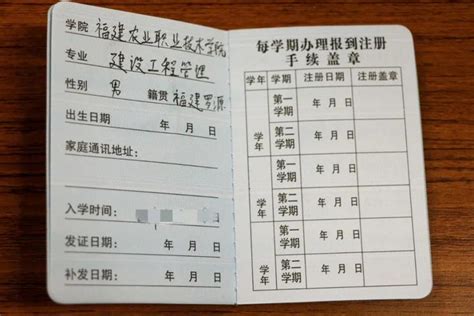 学院 福建农业职业技术学院
专业 建设工程管理
性别 男 籍贯 福建罗源
出生日期 年 月 日
家庭通讯地址:
入学时间:
发证日期: 年 月 日
补发日期: 年 月 日
每学期办理报到注册
手续盖章
学年 学期 注册日期 注册盖章
学年
第一学期 年 月 日
第二学期 年 月 日
学年
第一学期 年 月 日
第二学期 年 月 日
学年
第一学期 年 月 日
第二学期 年 月 日